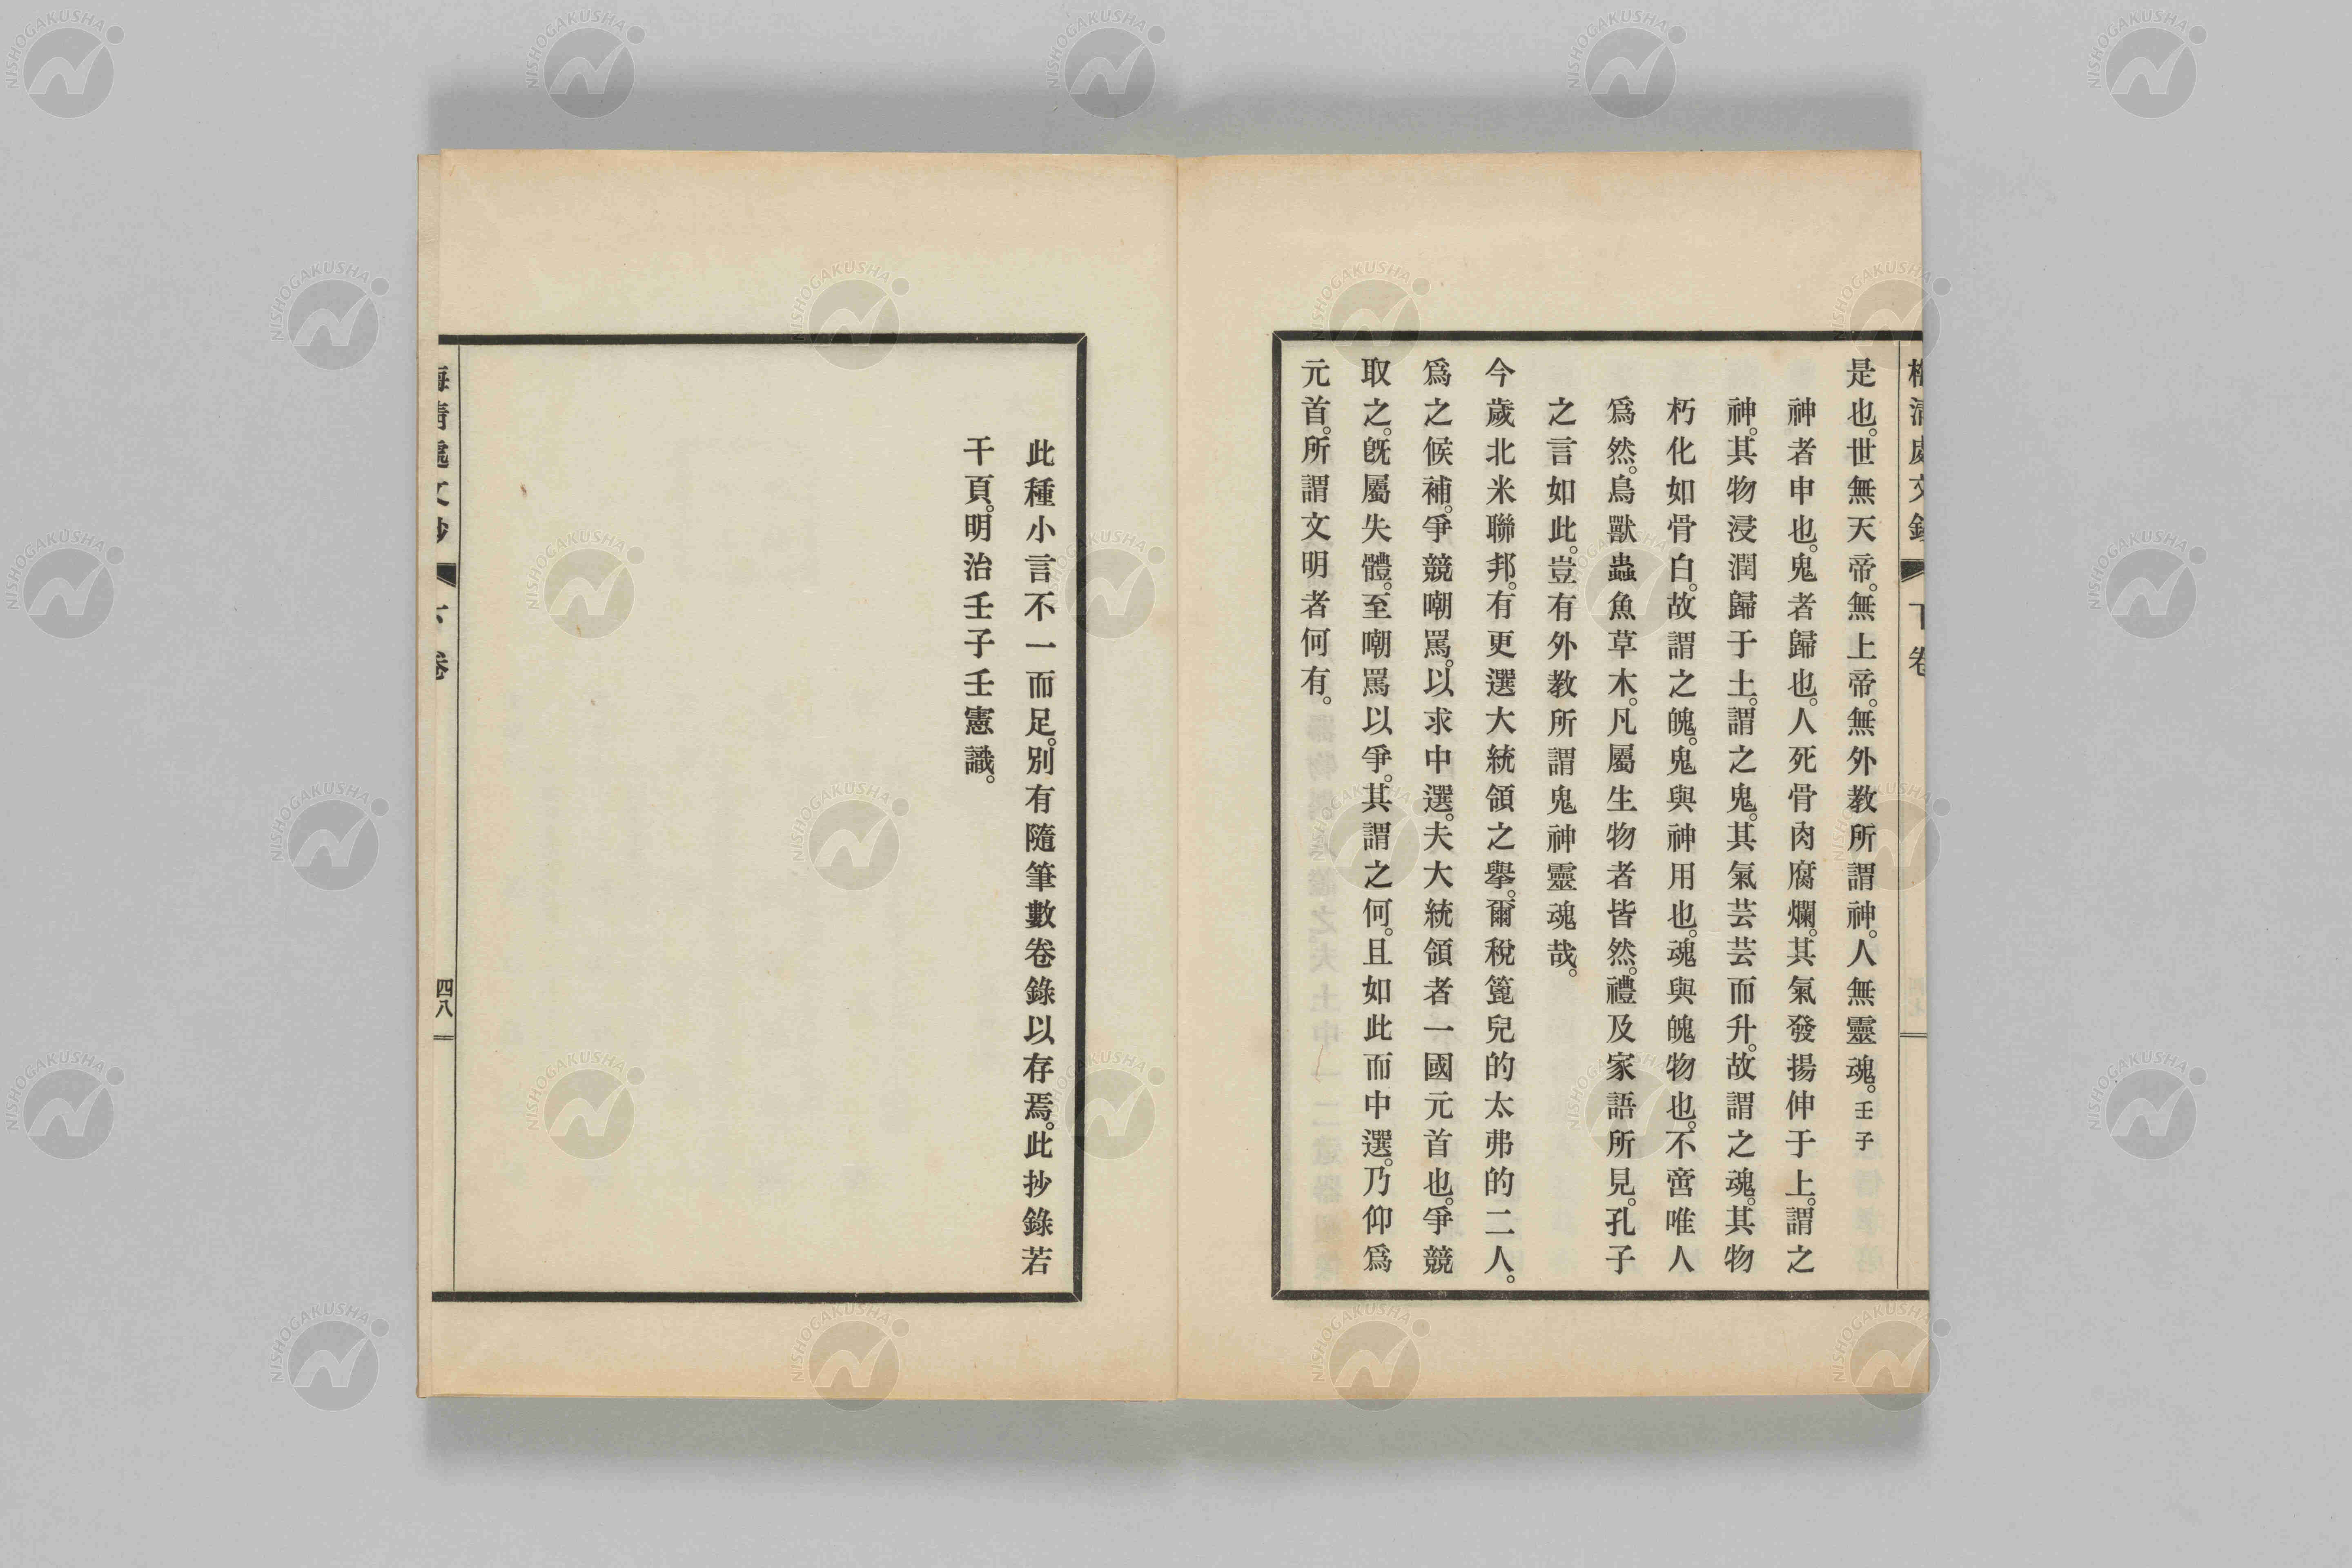 是也。世無天帝。無上帝。無外教所謂神。人無靈魂。壬子
神者申也。鬼者歸也。人死骨肉腐爛。其氣發揚伸于上。謂之
神。其物浸潤歸于土。謂之鬼。其氣芸芸而升。故謂之魂。其物
朽化如骨白。故謂之魄。鬼與神用也。魂與魄物也。不啻唯人
爲然。鳥獸蟲魚草木。凡屬生物者皆然。禮及家語所見。孔子
之言如此。豈有外教所謂鬼神靈魂哉。
今歲北米聯邦。有更選大統領之擧。爾稅篦兒的太弗的二人。
爲之候補。爭競嘲罵。以求中選。夫大統領者一國元首也。爭競
取之。既屬失體。至嘲罵以爭。其謂之何。且如此而中選。乃仰爲
元首。所謂文明者何有。
下卷
此種小言不一而足。別有隨筆數卷錄以存焉。此抄錄若
干頁。明治壬子壬憲識。
四八
NISHOGAKUSHA